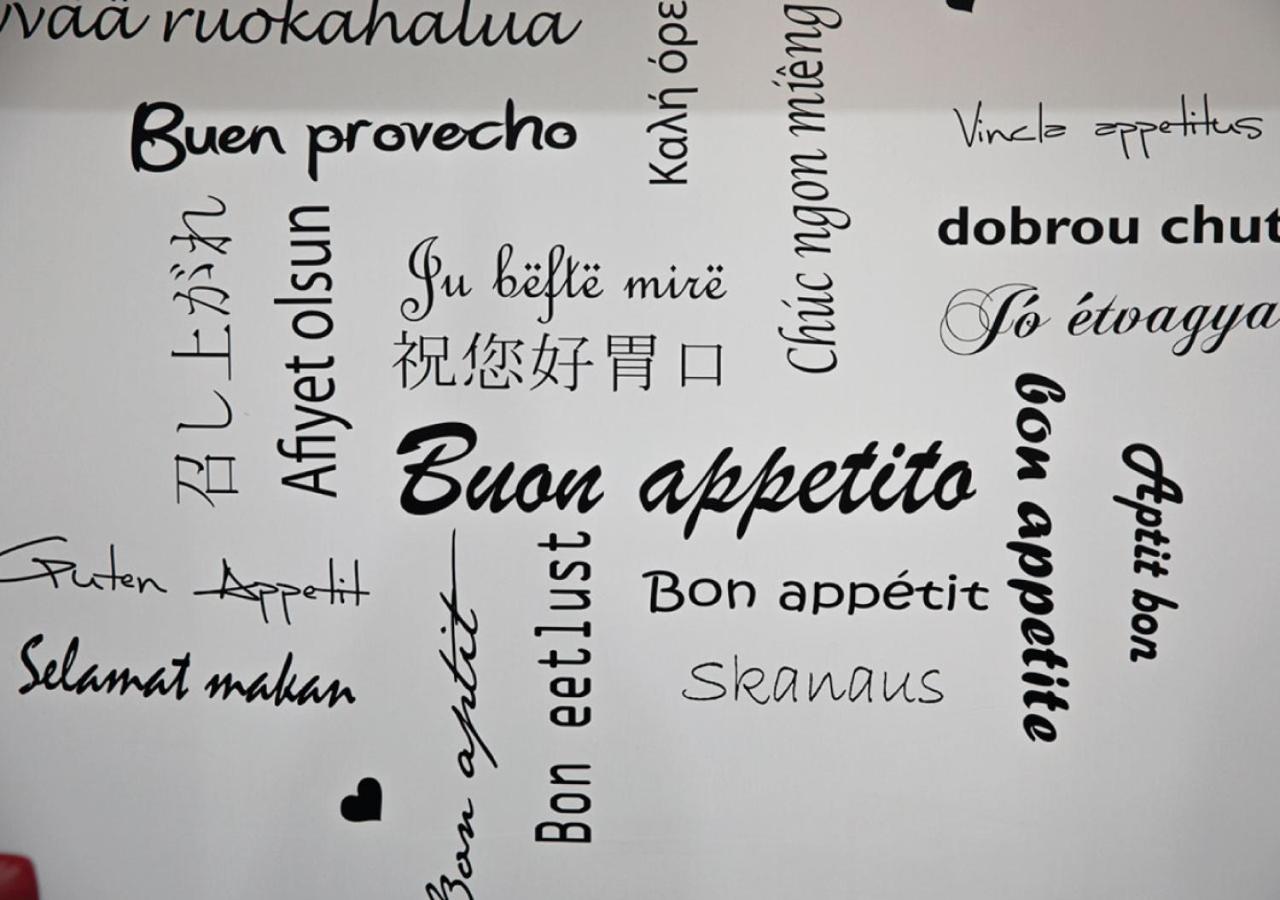 vää ruokahalua
Buen provecho
Καλή όρε
Chúc ngon miêng
Vincla appetitus
dobrou chut
召し上がれ
Afiyet olsun
Ju bëftë mirë
祝您好胃口
Jó étvagya
Buon appetito
bon appetite
Aptit bon
Guten Appetit
Bon aptit
Bon eetlust
Bon appétit
Selamat makan
Skanaus